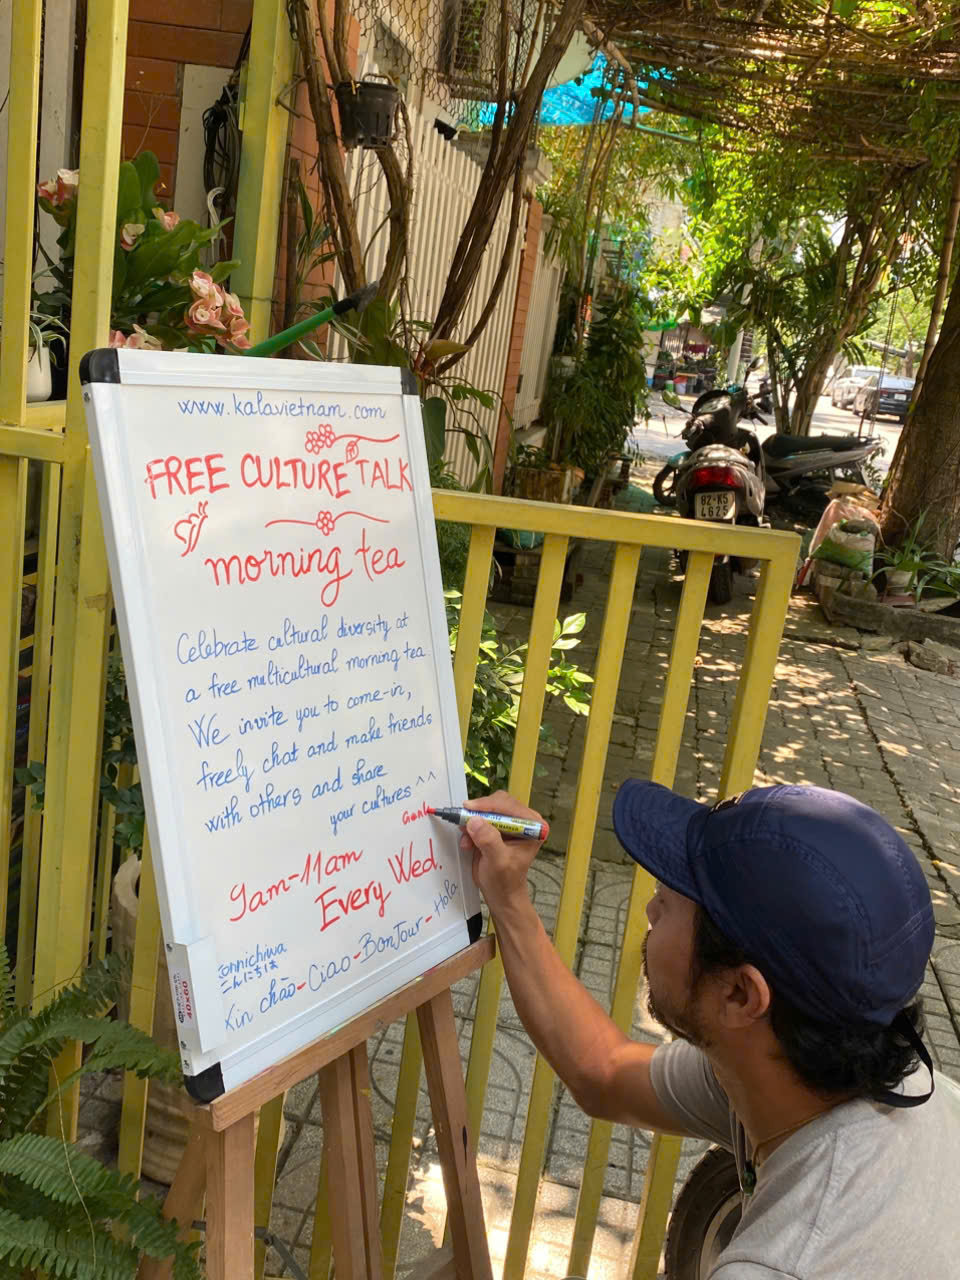 www.kalavietnam.com
FREE CULTURE TALK
morning tea
Celebrate cultural diversity at
a free multicultural morning tea.
We invite you to come-in,
freely chat and make friends
with others and share
your cultures ^^
9am-11am
Every Wed.
こんにちは
Xin chào-Ciao-BonJour-Hola
40x60
82-K5
4625